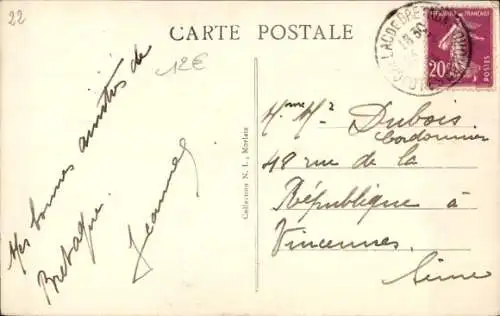 22
CARTE POSTALE
12€
Mes bonnes amitiés de
Bretagne.
Jeanne
Collection N. L., Morlaix
LAC DE BRE
18 30
REPUBLIQUE FRANCAISE
20c
POSTES
Mme Mr Dubois
Cordonnier
48 rue de la
République à
Vincennes.
Seine